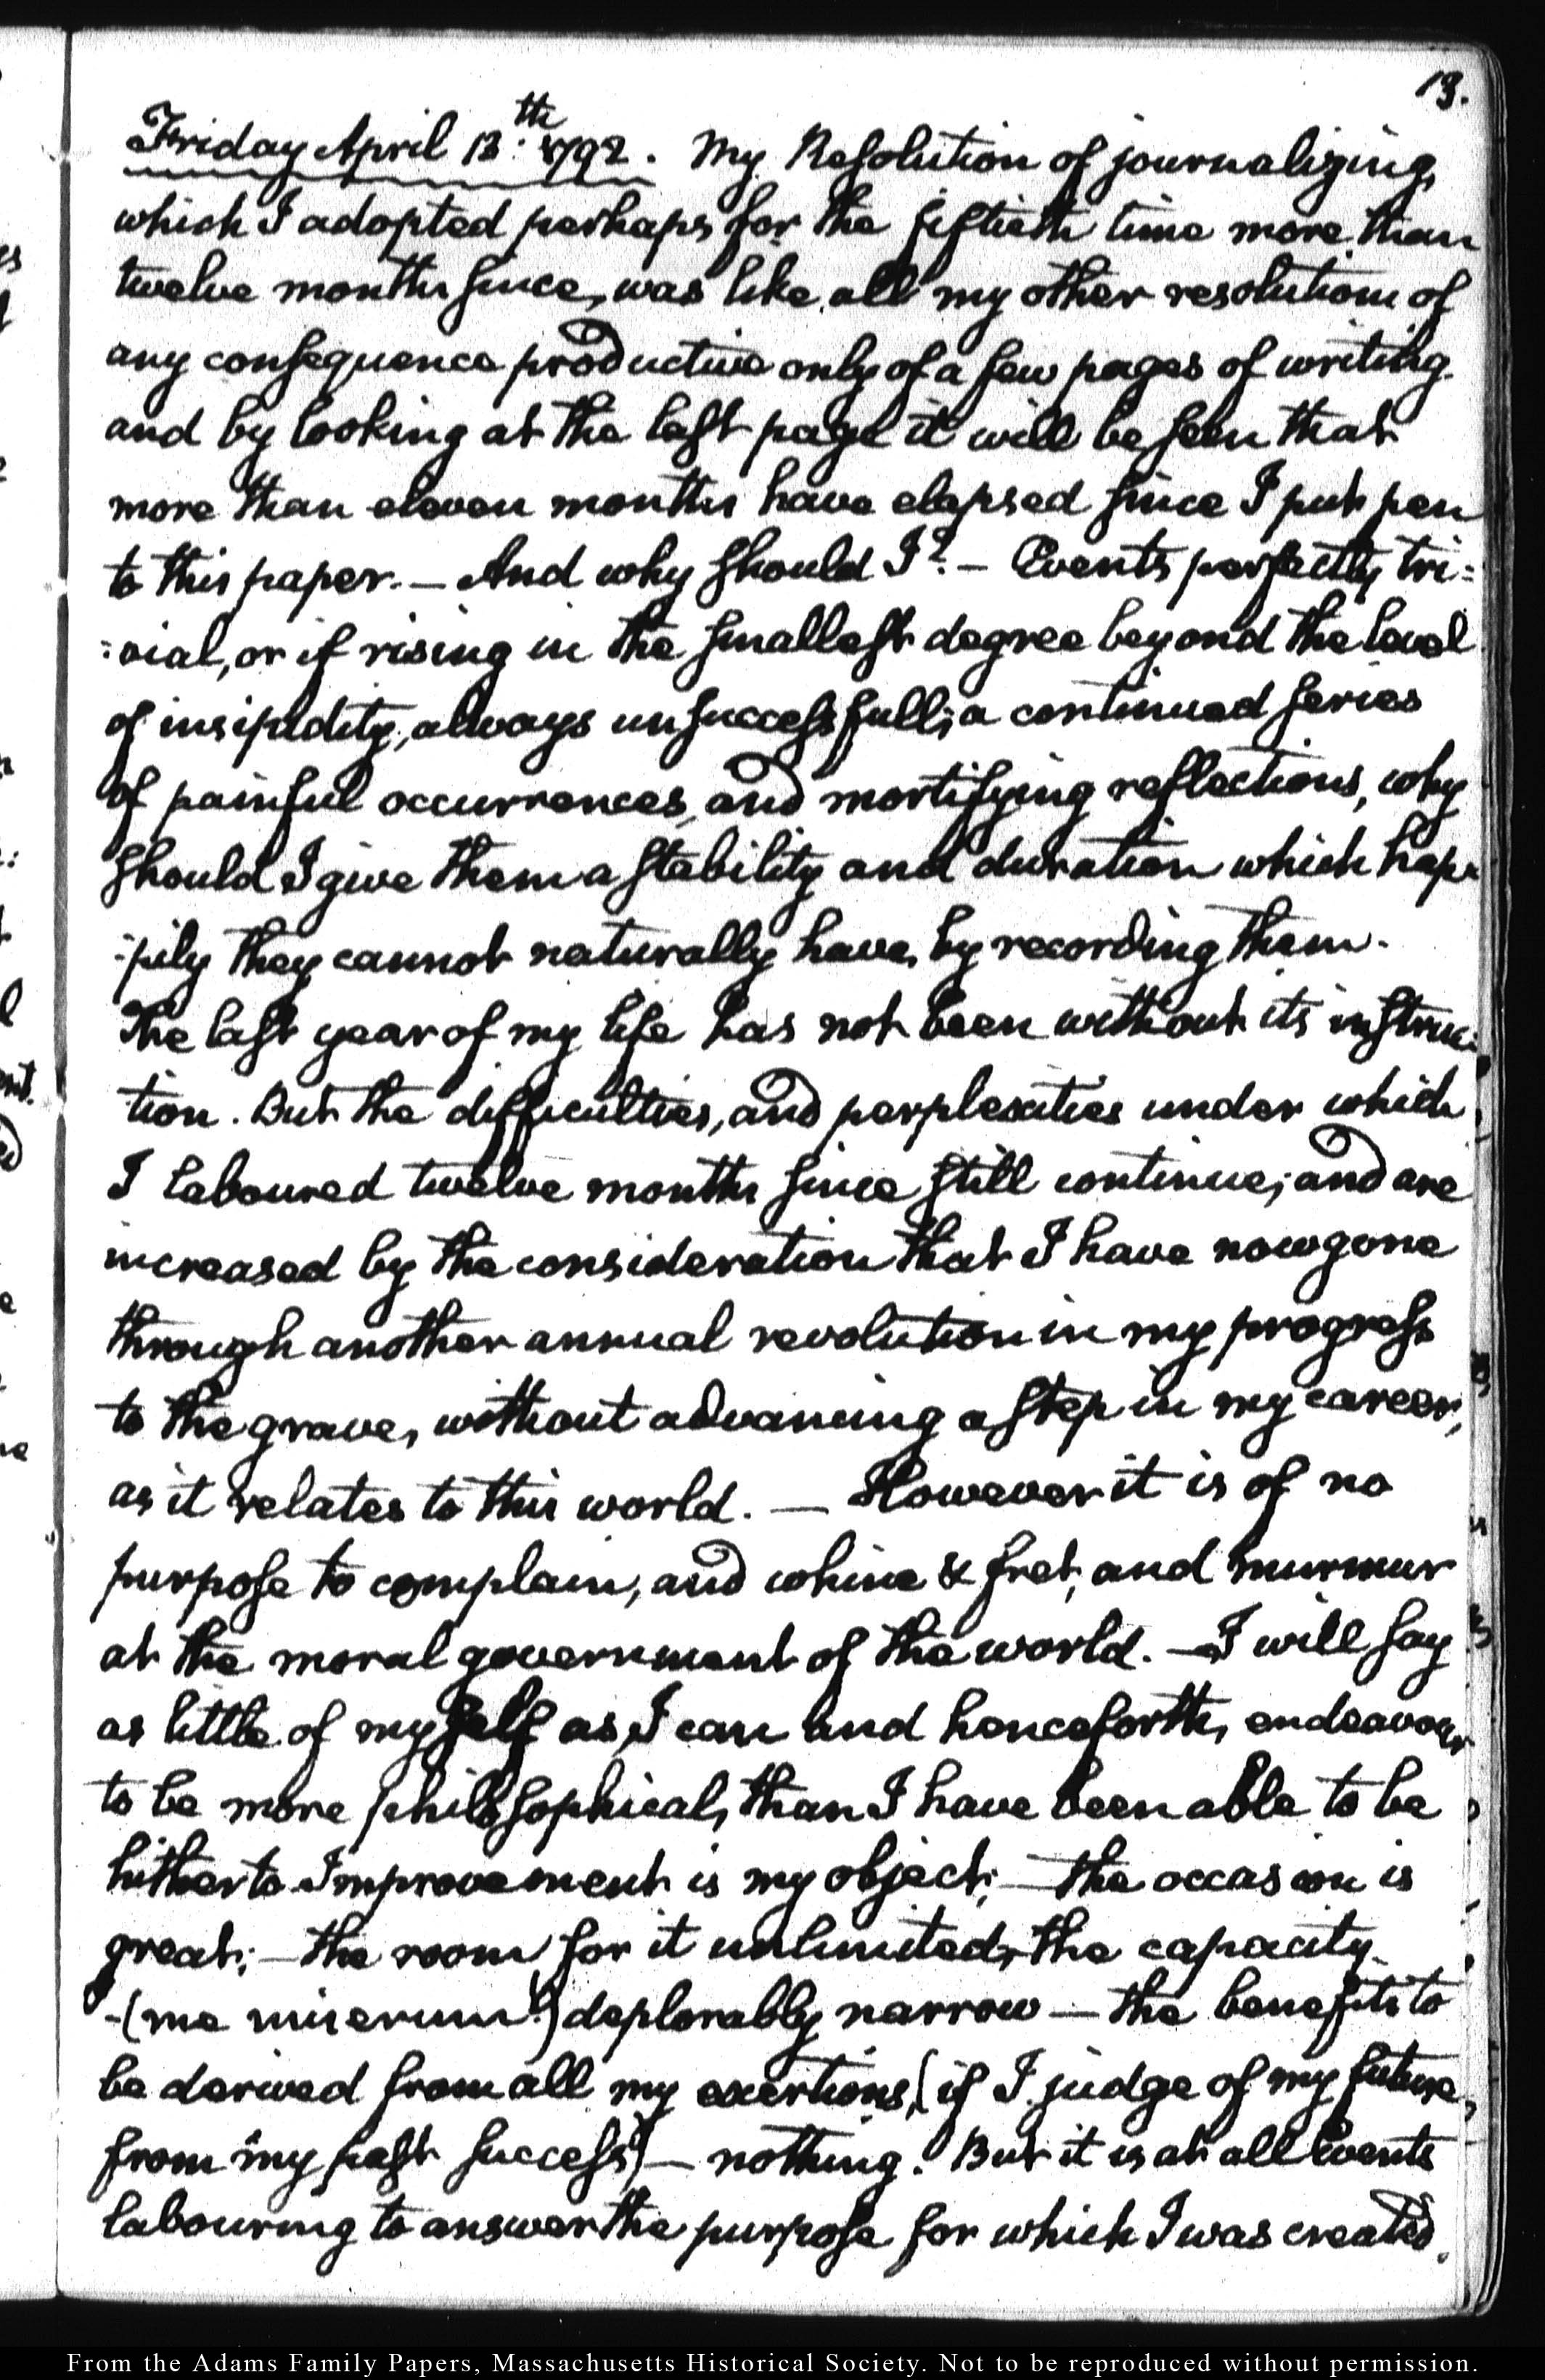 13.
Friday April 13.th 1792. My Resolution of journalizing,
which I adopted perhaps for the fiftieth time more than
twelve months since, was like all my other resolutions of
any consequence productive only of a few pages of writing.
and by looking at the last page it will be seen that
more than eleven months have elapsed since I put pen
to this paper. — And why should I? — Events perfectly tri=
=vial, or if rising in the smallest degree beyond the level
of insipidity, always unsuccessfull; a continued series
of painful occurrences, and mortifying reflections, why
should I give them a stability and duration which hap-
-pily they cannot naturally have, by recording them.
The last year of my life has not been without its instruc-
tion. But the difficulties, and perplexities under which
I laboured twelve months since still continue; and are
increased by the consideration that I have now gone
through another annual revolution in my progress
to the grave, without advancing a step in my career,
as it relates to this world. — However it is of no
purpose to complain, and whine & fret, and murmur
at the moral government of the world. — I will say
as little of myself as I can and henceforth, endeavour
to be more philosophical, than I have been able to be
hitherto. Improvement is my object; — the occasion is
great; — the room for it unlimited, the capacity
-(me miserum!) deplorably narrow — the benefits to
be derived from all my exertions, (if I judge of my future,
from my past success) — nothing. But it is at all Events
labouring to answer the purpose for which I was created.
From the Adams Family Papers, Massachusetts Historical Society. Not to be reproduced without permission.